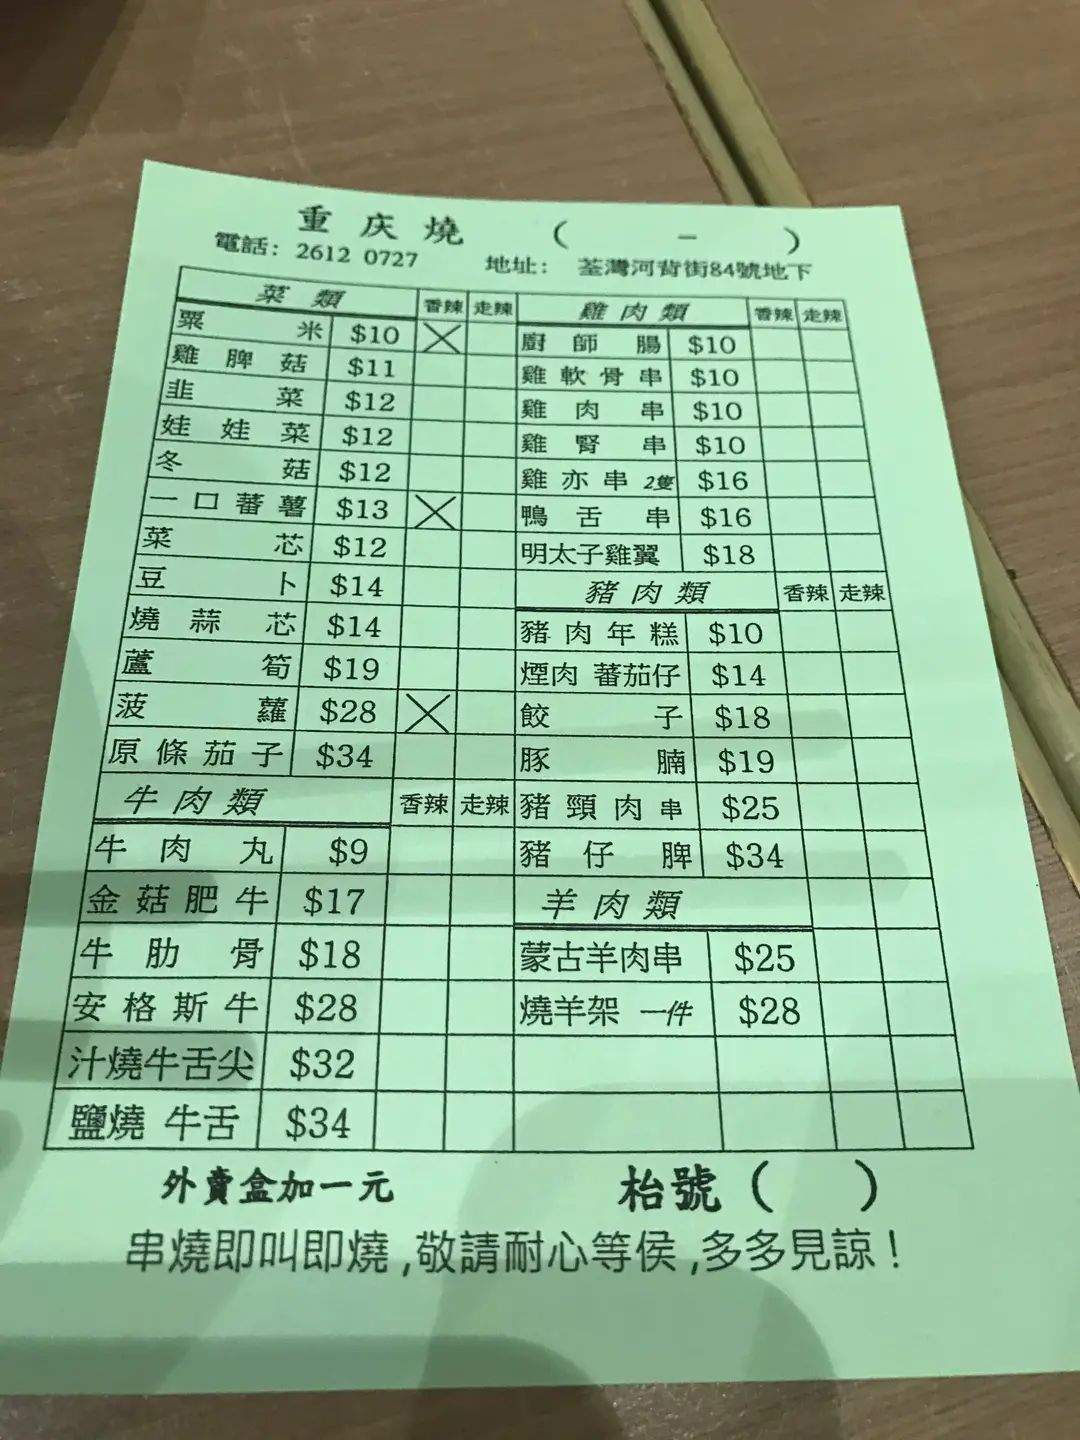 重庆燒 ( - )
電話: 2612 0727 地址: 荃灣河背街84號地下
菜類 香辣 走辣
粟米 $10
雞脾菇 $11
韭菜 $12
娃娃菜 $12
冬菇 $12
一口蕃薯 $13
菜芯 $12
豆卜 $14
燒蒜芯 $14
蘆筍 $19
菠蘿 $28
原條茄子 $34
牛肉類 香辣 走辣
牛肉丸 $9
金菇肥牛 $17
牛肋骨 $18
安格斯牛 $28
汁燒牛舌尖 $32
鹽燒 牛舌 $34
雞肉類 香辣 走辣
廚師腸 $10
雞軟骨串 $10
雞肉串 $10
雞腎串 $10
雞亦串 2隻 $16
鴨舌串 $16
明太子雞翼 $18
豬肉類 香辣 走辣
豬肉年糕 $10
煙肉 蕃茄仔 $14
餃子 $18
豚腩 $19
豬頸肉串 $25
豬仔脾 $34
羊肉類
蒙古羊肉串 $25
燒羊架 一件 $28
外賣盒加一元 枱號 ( )
串燒即叫即燒 ,敬請耐心等侯 ,多多見諒 !